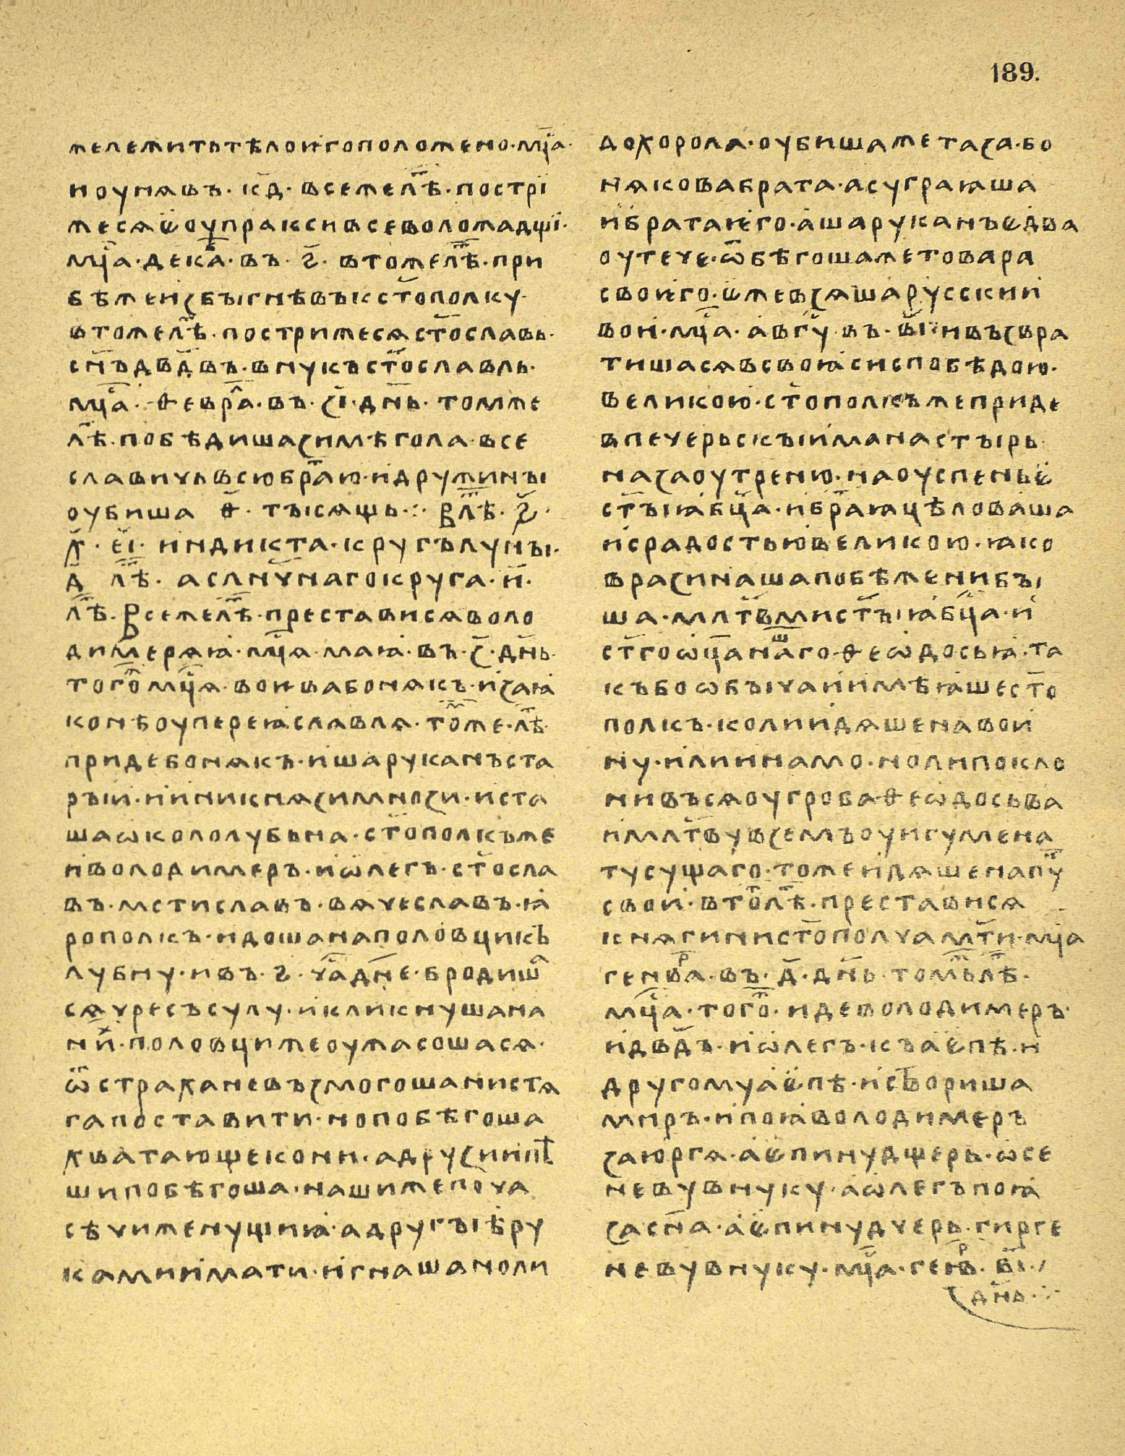 189.
жележитьтѣлоѥгоположено·мц҃а·
ноунѧвъ·кд҃·всежелѣ҃·пострі
жесѧєоупраксивсеволожадщі·
мц҃а·дека҃·въ·г҃·втожелѣ҃·при
бѣжеиꙁбъıгнѣвъıкст҃ополку·
втожелѣ҃·пострижесѧст҃ославь·
сн҃ъдв҃двъ·внукъст҃ославль·
мц҃а·ѳеврѧ҃·въ·ꙁı҃·дн҃ь·томже
лѣ҃·побѣдишаꙁимѣгола·все
славичьвсюбра҃ю·идружинъı
оубиша ѳ҃·тъıсѧщь·:·Влѣ҃·ꙅ҃·
х҃·еı҃·индикта·кругълунъı·
д҃ лѣ҃·аслн҃чнагокруга·и҃·
лѣ҃·Всежелѣ҃·престависѧволо
димерѧꙗ·мц҃ѧ·маꙗ·въ·ꙁ҃·дн҃ь·
того҃мц҃ѧ·воѥвабонѧкъ·иꙁаꙗ
конѣоупереꙗславлѧ·то҃же·лѣ҃·
придебонѧкъ·ишаруканъста
ръıи·ииникнѧꙁимноꙁи·иста
шаѡкололубьна·ст҃ополкъже
иволодимеръ·иѡлегъ·ст҃осла
въ·мстиславъ·вѧчеславъ·ꙗ
рополкъ·идошанаполовцикъ
лубну·ивъ·г҃·ча҃дн҃е·бродиша
сѧчресъсулу·икликнушана
ни҃·половцижеоужасошасѧ·
ѿстраханевъꙁмогошанистѧ
гапоставити·нопобѣгоша
хватающекони·адруꙁиипѣ
шипобѣгоша·нашижепоча
сѣчиженущиꙗ·адругъıѣру
камиимати·игнашаноли
дохоролѧ·оубишажетаꙁа·бо
нѧковабрата·асуграꙗша
ибратаѥго·ашаруканъєдва
оутече·ѿбѣгошажетовара
своѥго·ѥжевꙁѧшарусскии
вои·мц҃а·авгу҃·въ·вı҃·ивъꙁвра
тишасѧвсвоꙗсиспобѣдою·
великою·ст҃ополкъжеприде
впечерьскъıиманастъıрь
наꙁаоутреню·наоуспеньє
ст҃ъıꙗбц҃а·ибра҃ꙗцѣловаша
исрадостьювеликою·ꙗко
враꙁинашапобѣженибъı
ша·млт҃вмист҃ъıꙗбц҃а·и
ст҃гоѡц҃анашаго·ѳеѡдосьꙗ·та
къбоѡбъıчаиимѣꙗшест҃о
полкъ·колиидѧшенавои
ну·илиинамо·нолипокло
нивъсѧоугробаѳеѡдосьва
имлт҃вувꙁемъоуигумена
тусущаго·тожеидѧшенапу҃
свои·вто҃лѣ҃·преставнсѧ
кнѧгинист҃ополчамт҃и·мц҃а
генвр҃а·въ·д҃·дн҃ь·томьлѣ҃·
мц҃а·того҃·идеволодимеръ·
идв҃дъ·иѡлегъ·къаєпѣ·и
другомуаєпѣ·исвориша
миръ·ипоꙗволодимеръ
ꙁаюргѧ·аєпинудщерь·ѡсе
невувнуку·аѡлегъпоꙗ
ꙁасн҃а·аєпинудчерь·гирге
невувнуку·мц҃а·генвр҃·вı҃·
дн҃ь·:·